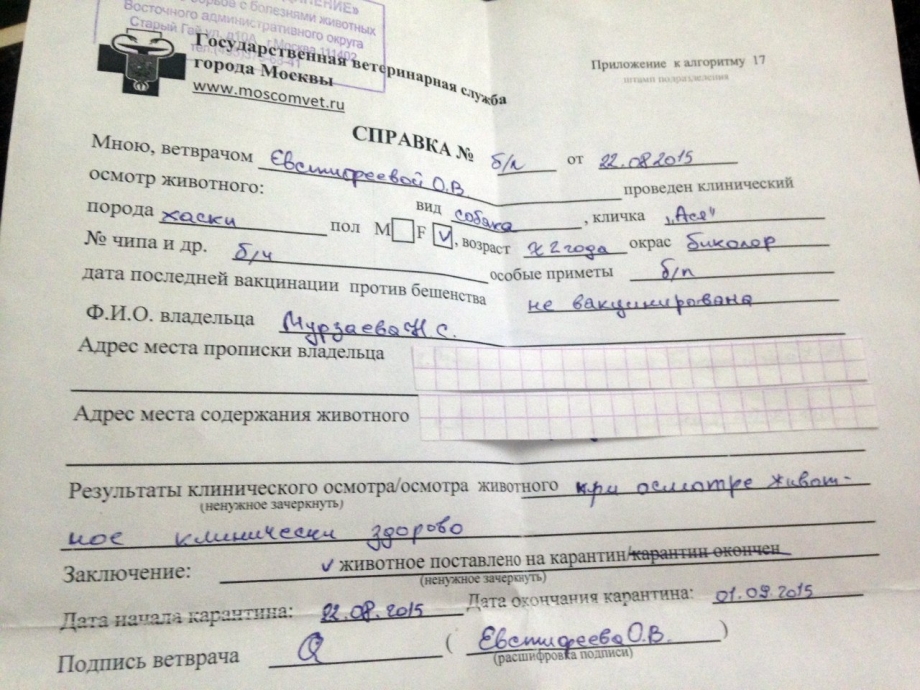 борьбе с болезнями животных
Восточного административного округа
Старый Гай ул., д10А, г.Москва 111402
Государственная ветеринарная служба
города Москвы
www.moscomvet.ru
Приложение к алгоритму 17
штамп подразделения
СПРАВКА № б/н от 22.08.2015
Мною, ветврачом Евстифеевой О.В проведен клинический
осмотр животного: вид собака, кличка „Ася"
порода хаски пол M F V, возраст 2 года окрас биколор
№ чипа и др. б/ч особые приметы б/п
дата последней вакцинации против бешенства не вакцинирована
Ф.И.О. владельца Мурзаева Н.С.
Адрес места прописки владельца
Адрес места содержания животного
Результаты клинического осмотра/осмотра животного при осмотре живот-
(ненужное зачеркнуть)
ное клинически здорово
Заключение: V животное поставлено на карантин/карантин окончен
(ненужное зачеркнуть)
Дата начала карантина: 22.08.2015 Дата окончания карантина: 01.09.2015
Подпись ветврача ( Евстифеева О.В. )
(расшифровка подписи)